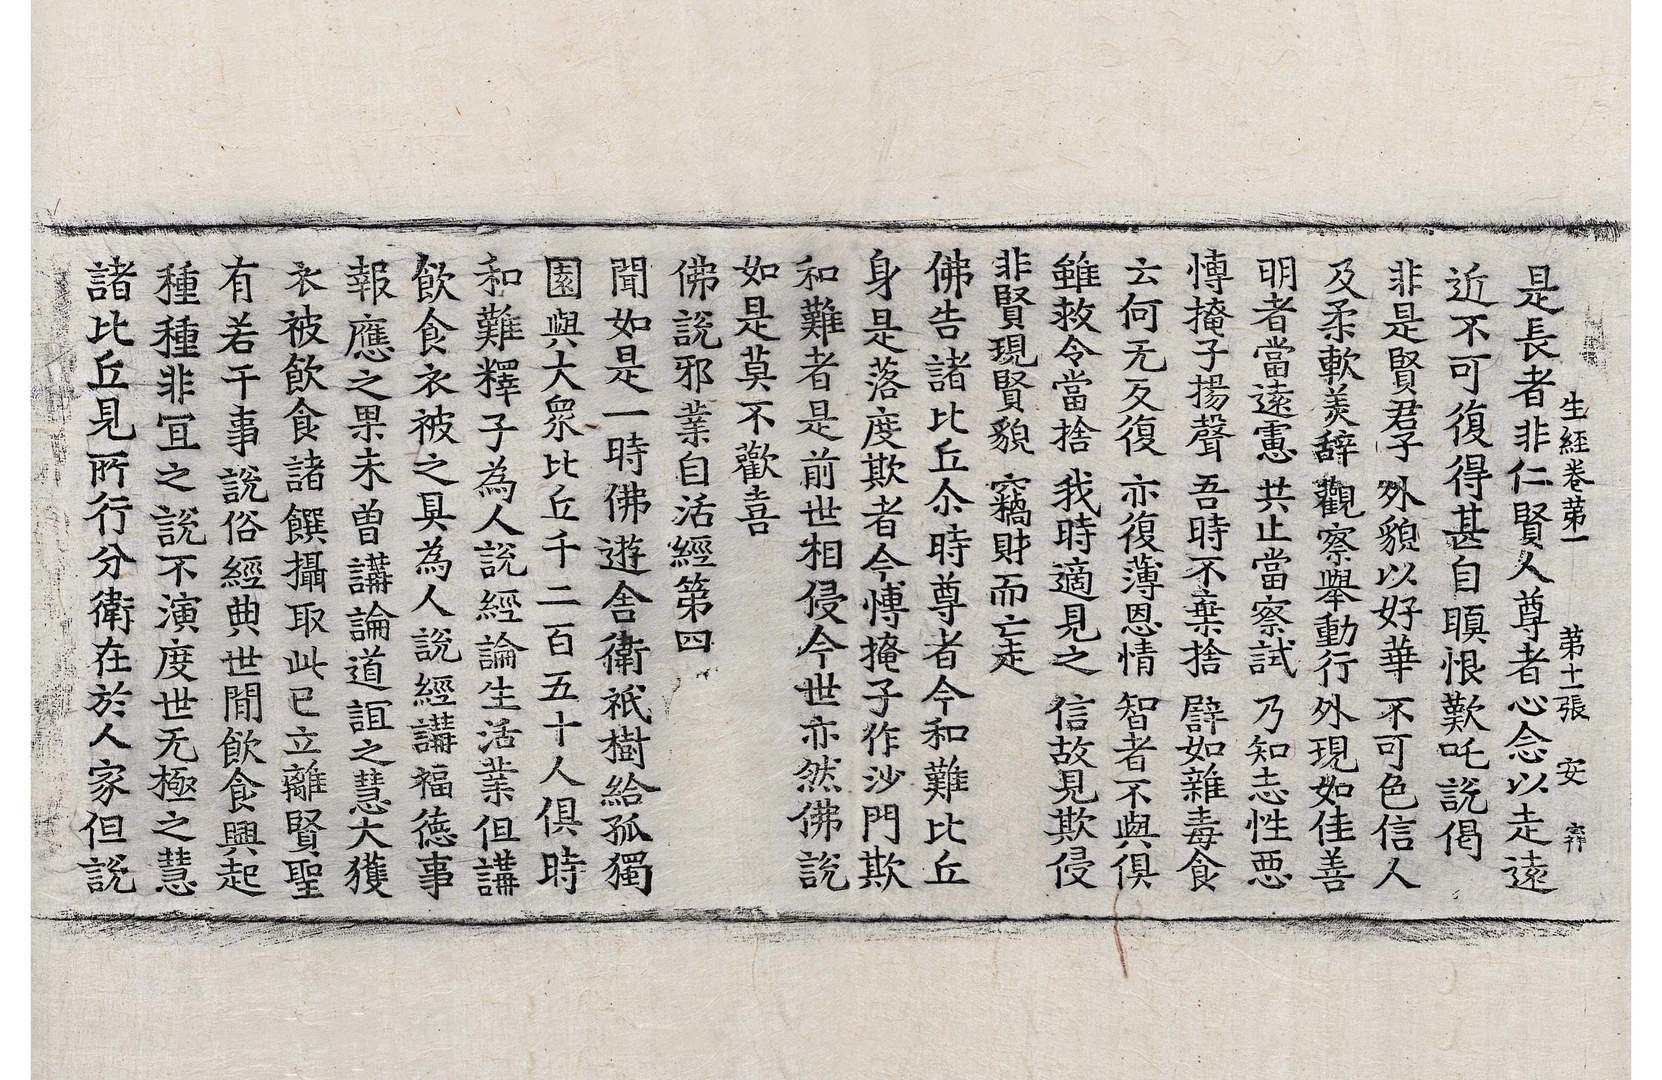 生經卷第一　第十一張　安
是長者非仁賢人尊者心念以走遠
近不可復得甚自瞋恨歎吒說偈
非是賢君子　外貌以好華　不可色信人
及柔軟美辭　觀察舉動行　外現如佳善
明者當遠慮　共止當察試　乃知志性惡
慱掩子揚聲　吾時不棄捨　譬如雜毒食
云何无反復　亦復薄恩情　智者不與俱
雖救令當捨　我時適見之　信故見欺侵
非賢現賢貌　竊財而亡走
佛告諸比丘尒時尊者今和難比丘
身是落度欺者今慱掩子作沙門欺
和難者是前世相侵今世亦然佛說
如是莫不歡喜
佛說邪業自活經第四
聞如是一時佛遊舍衛祇樹給孤獨
園與大眾比丘千二百五十人俱時
和難釋子為人說經論生活業但講
飲食衣被之具為人說經講福德事
報應之果未曾講論道誼之慧大獲
衣被飲食諸饌攝取此已立離賢聖
有若干事說俗經典世間飲食興起
種種非冝之說不演度世无極之慧
諸比丘見所行分衛在於人家但說